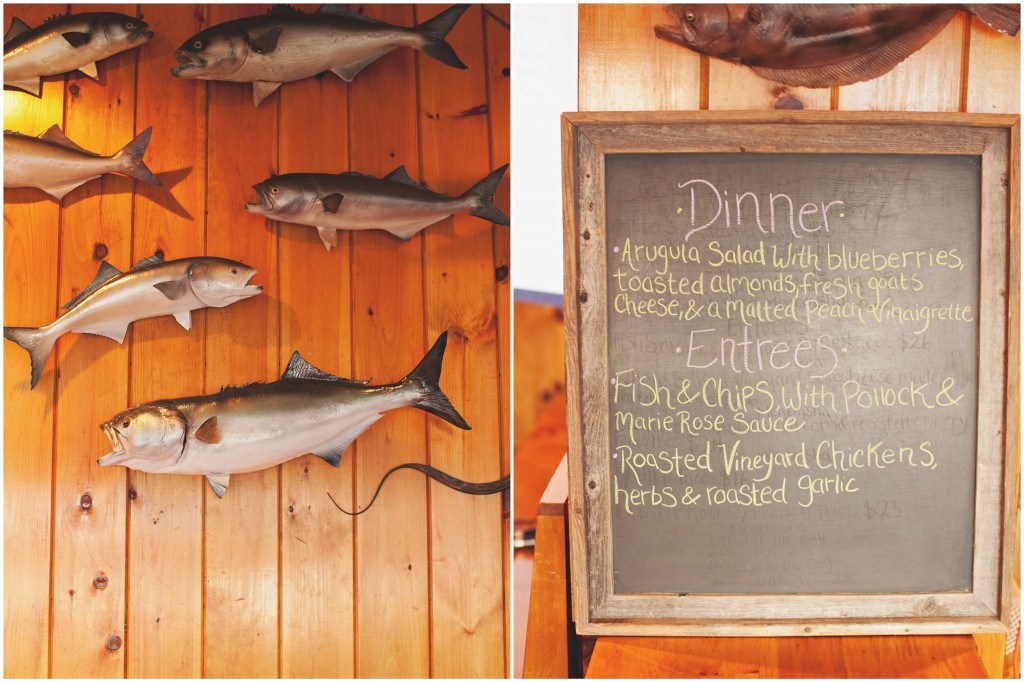 Dinner
· Arugula Salad With blueberries,
toasted almonds, fresh goats
Cheese, & a Malted Peach Vinaigrette
· Entrees ·
· Fish & Chips, With Pollock &
Marie Rose Sauce
· Roasted Vineyard Chickens,
herbs & roasted garlic
$26
$23